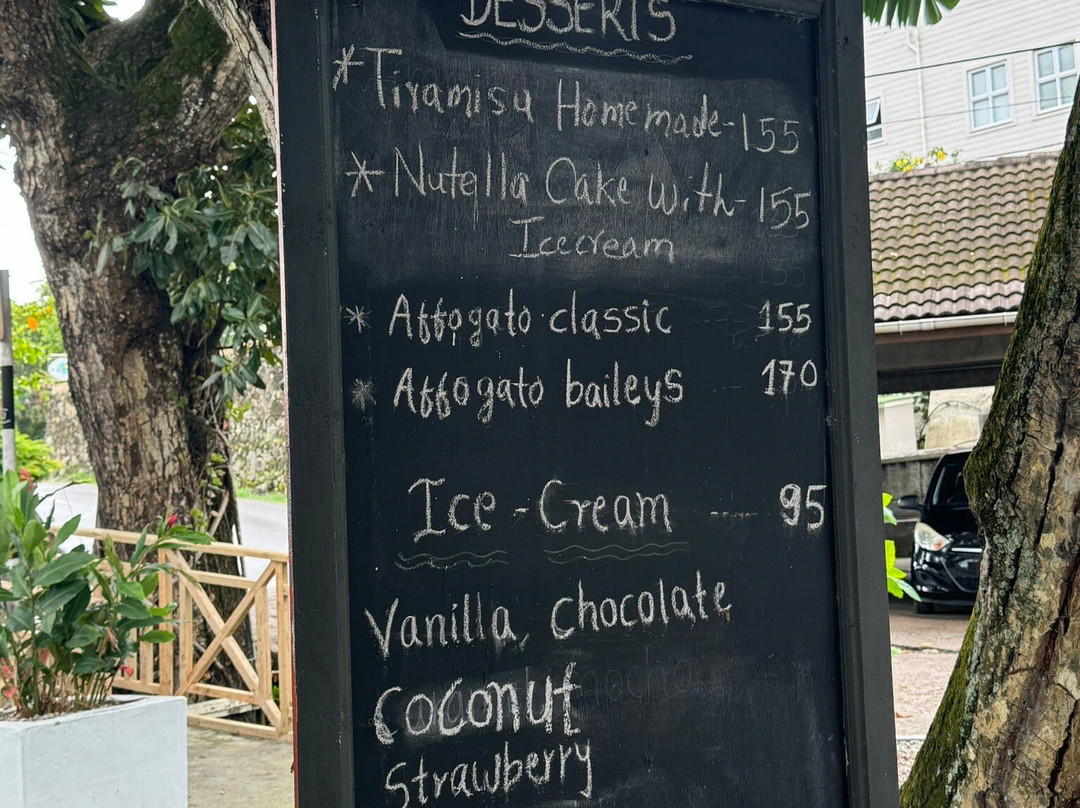 DESSERTS
*Tiramisu Homemade-155
*Nutella Cake with-155
Icecream
* Affogato classic 155
* Affogato baileys -- 170
Ice-Cream ---- 95
Vanilla, chocolate
coconut mocha
Strawberry